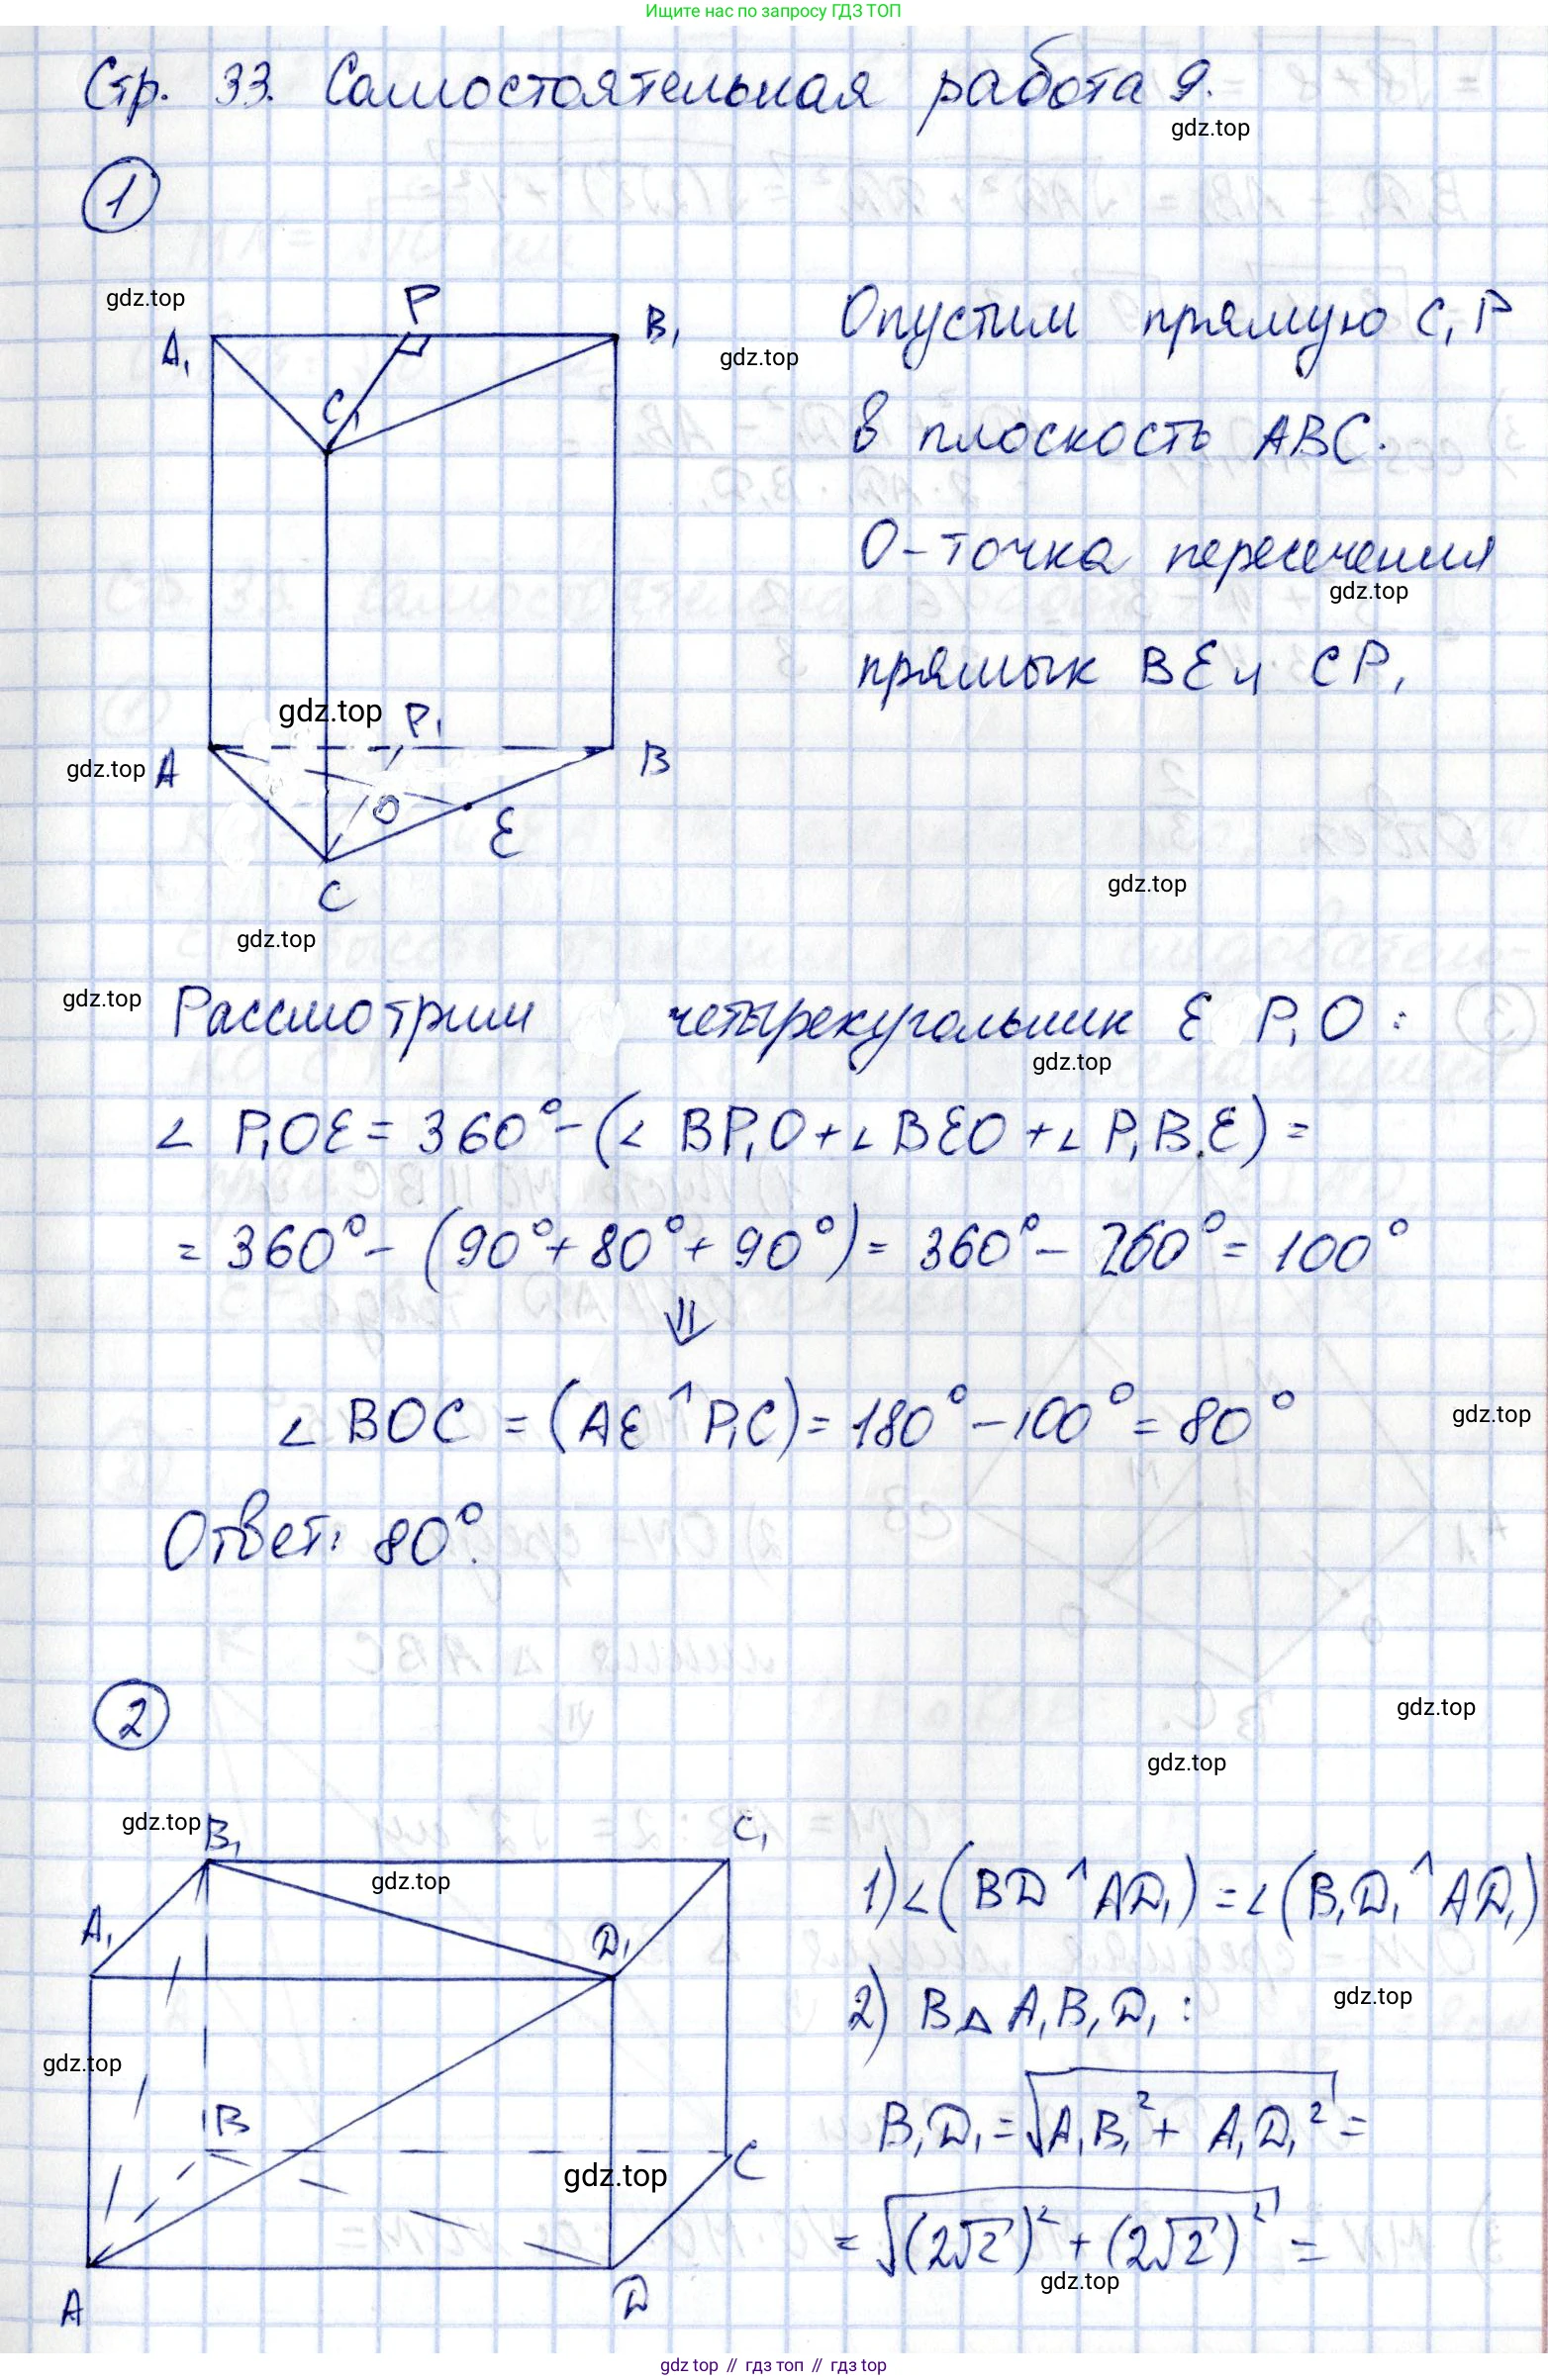 Ищите нас по запросу ГДЗ ТОП
Стр. 33. Самостоятельная работа 9.
gdz.top
1
gdz.top
P
A₁
B₁
C₁
gdz.top
Опустим прямую C₁P
в плоскость ABC.
O - точка пересечения
gdz.top
прямых BE и CP₁
gdz.top
P₁
gdz.top
A
B
O
E
C
gdz.top
gdz.top
gdz.top
Рассмотрим четырехугольник E P₁O :
gdz.top
∠ P₁OE = 360° - (∠ BP₁O + ∠ BEO + ∠ P₁BE) =
= 360° - (90° + 80° + 90°) = 360° - 260° = 100°
⇓
∠ BOC = (AE ^ P₁C) = 180° - 100° = 80°
gdz.top
Ответ: 80°.
2
gdz.top
gdz.top
gdz.top
B₁
C₁
gdz.top
A₁
D₁
gdz.top
B
C
gdz.top
A
D
1) ∠(BD ^ AD₁) = ∠(B₁D₁ ^ AD₁)
2) В △ A₁B₁D₁ :
gdz.top
B₁D₁ = √(A₁B₁² + A₁D₁²) =
= √((2√2)² + (2√2)²) =
gdz.top
gdz top // гдз топ // gdz top